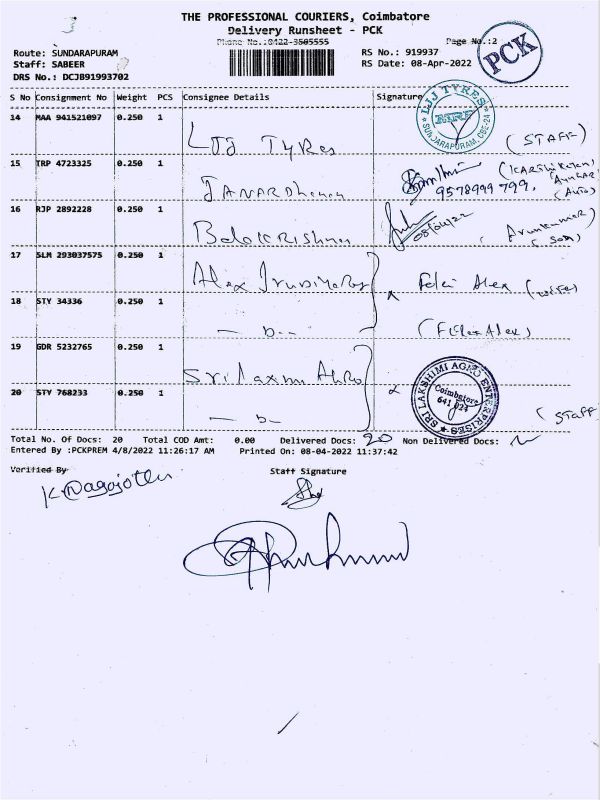 3
THE PROFESSIONAL COURIERS, Coimbatore
Delivery Runsheet - PCK
Phone No.:0422-3505555
Page No.:2
PCK
Route: SUNDARAPURAM
RS No.: 919937
Staff: SABEER
RS Date: 08-Apr-2022
DRS No.: DCJB91993702
S No Consignment No Weight PCS Consignee Details Signature
14 MAA 941521097 0.250 1 LJJ Tyres (STAFF)
LJJ TYRES
MRF
SUNDARAPURAM, CBE-24
15 TRP 4723325 0.250 1 JANARDhanan
9578999799,
(Auto)
16 RJP 2892228 0.250 1 Balakrishnan
08/04/22
(Arunkumar)
(Son)
17 SLM 293037575 0.250 1 Alex (wife)
18 STY 34336 0.250 1
19 GDR 5232765 0.250 1 Sri Laxmi Agro
SRI LAKSHMI AGRO ENTERPRISES
Coimbatore
641 024
20 STY 768233 0.250 1 (Staff
Total No. Of Docs: 20 Total COD Amt: 0.00 Delivered Docs: 20 Non Delivered Docs:
Entered By :PCKPREM 4/8/2022 11:26:17 AM Printed On: 08-04-2022 11:37:42
Verified By
Staff Signature